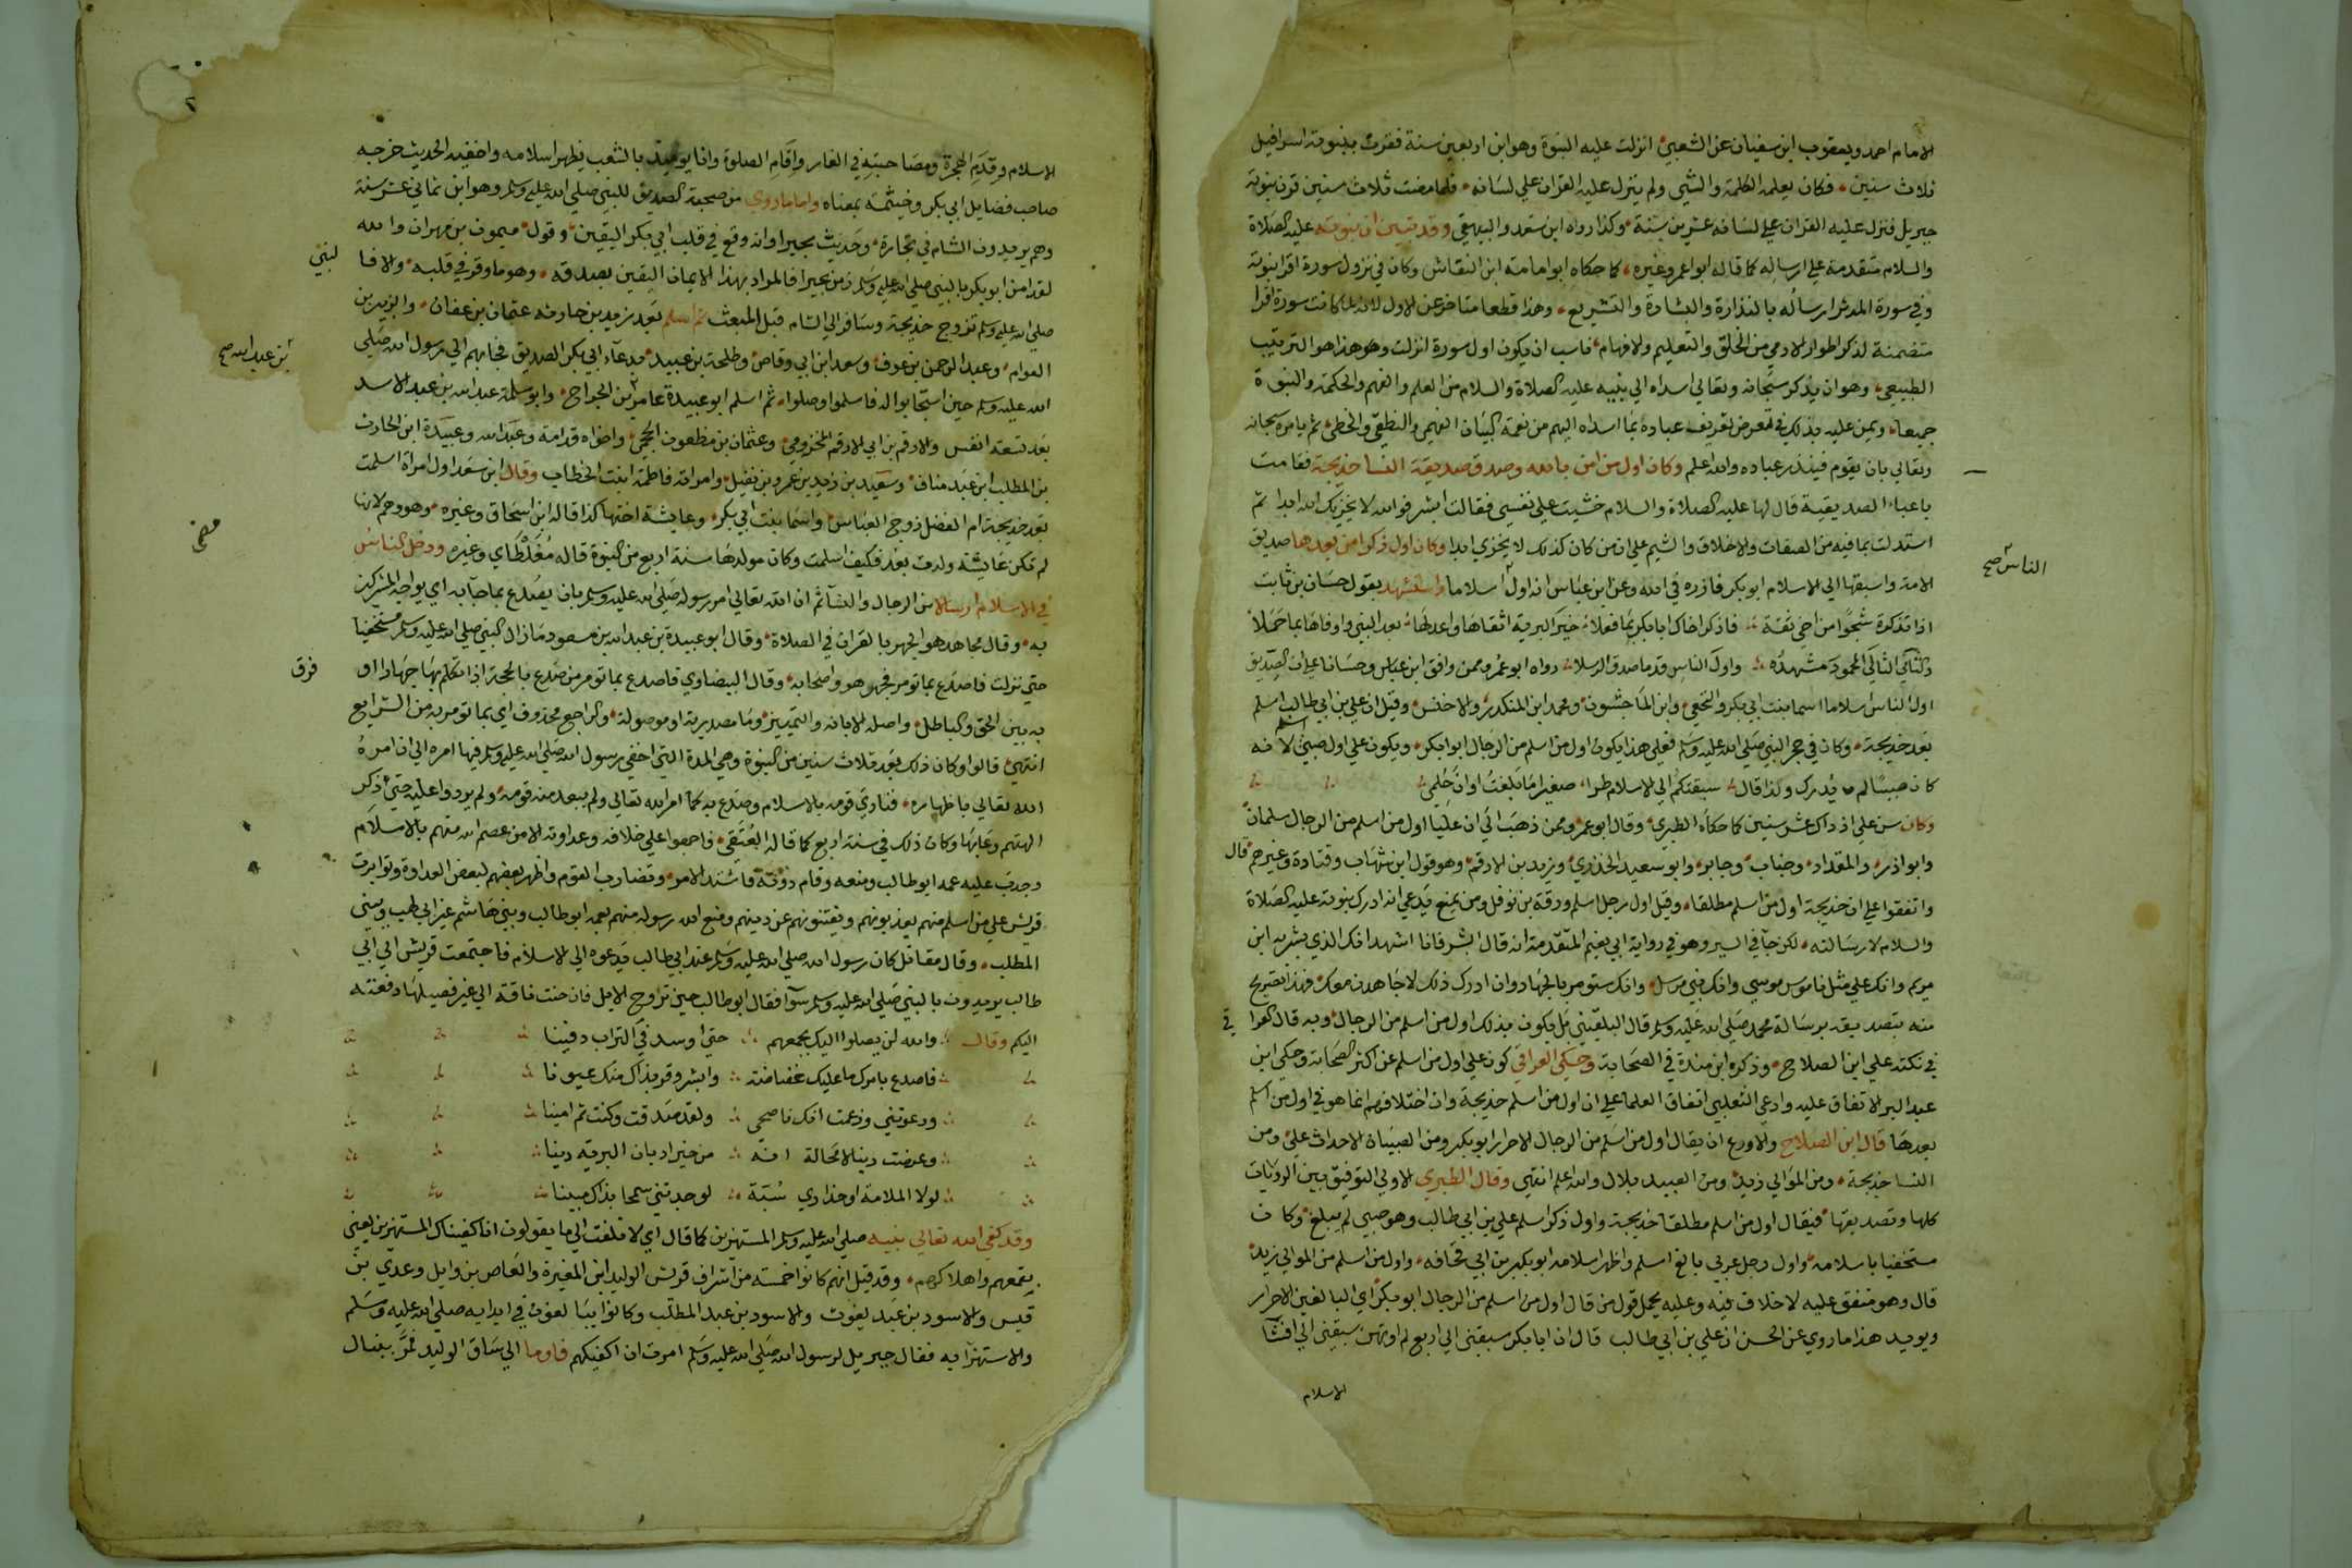 الامام احمد ويعقوب ابن سفيان عن الشعبي انزلت عليه النبوة وهو ابن اربعين سنة فقرن بنبوته اسرافيل
ثلاث سنين فكان يعلمه الكلمة والشي ولم ينزل عليه القران علي لسانه فلما مضت ثلاث سنين قرن بنبوته
جبريل فنزل عليه القران علي لسانه عشرين سنة وكذا رواه ابن سعد والبيهقي وقد تبين ان نبوته عليه الصلاة
والسلام متقدمة علي ارساله كما قاله ابو اعمر وغيره كما حكاه ابو امامة ابن النقاش وكان في نزول سورة اقرا نبوته
وفي سورة المدثر ارساله بالنذارة والبشارة والتشريع وهذا قطعا متاخر عن الاول لانه لما كانت سورة اقرا
متضمنة لذكر اطوار الادمي من الخلق والتعليم والافهام ناسب ان يكون اول سورة انزلت وهو هذا هو الترتيب
الطبيعي وهو ان يذكر سبحانه وتعالي اسداه الي نبيه عليه الصلاة والسلام من العلم والفهم والحكمة والنبوة
جميعا ويمن عليه بذلك في معرض تعريف عباده بما اسداه اليهم من نعمة البيان الفهمي والنطقي والخطي ثم يامره سبحانه
وتعالي بان يقوم فينذر عباده والله اعلم وكان اول من امن بالله وصدق صديقة النسا خديجة فقامت
باعباء الصديقية قال لها عليه الصلاة والسلام خشيت علي نفسي فقالت ابشر فوالله لا يخزيك الله ابدا ثم
استدلت بما فيه من الصفات والاخلاق والشيم علي ان من كان كذلك لا يخزي ابدا وكان اول ذكر امن بعدها صديق
الامة واسبقها الي الاسلام ابو بكر فازره في الله وعن ابن عباس انه اول اسلاما واستشهد بقول حسان بن ثابت
الناس صح
اذا تذكرة شجوا من اخي ثقة فاذكر اخاك ابابكر بما فعلا خير البرية اتقاها واعدلها بعد النبي واوفاها بما حملا
والثاني التالي المحمود مشهده واول الناس قدما صدق الرسلا رواه ابو عمر وممن وافق ابن عباس وحسانا علي ان الصديق
اول الناس اسلاما اسما بنت ابي بكر والنخعي وابن الماجشون ومحمد ابن المنكدر والاخنس وقيل ان علي بن ابي طالب اسلم
بعد خديجة وكان في حجر النبي صلي الله عليه وسلم فعلي هذا يكون اول من اسلم من الرجال ابو ابكر ويكون علي اول صبي اسلم لانه
كان صبيا لم يدرك ولذا قال سبقتكم الي الاسلام طرا صغيرا ما بلغت اوان حلمي
وكان سن علي اذ ذاك عشر سنين كما حكاه الطبري وقال ابو عمر وممن ذهب الي ان عليا اول من اسلم من الرجال سلمان
وابو اذر والمقداد وخباب وجابر وابو سعيد الخدري وزيد بن الارقم وهو قول ابن شهاب وقتادة وغيرهم قال
واتفقوا علي ان خديجة اول من اسلم مطلقا وقيل اول رجل اسلم ورقة بن نوفل ومن يمنع يدعي انه ادرك نبوته عليه الصلاة
والسلام لا رسالته لكن جا في السير وهو في رواية ابي نعيم المتقدمة انه قال ابشر فانا اشهد انك الذي بشر به ابن
مريم وانك علي مثل ناموس موسي وانك نبي مرسل وانك ستومر بالجهاد وان ادرك ذلك لاجاهدن معك فهذا تصريح
منه بتصديقه برسالة محمد صلي الله عليه وسلم قال البلقيني بل يكون بذلك اول من اسلم من الرجال وبه قال العراقي
في نكته علي ابن الصلاح وذكره ابن مندة في الصحابة وحكي العراقي كون علي اول من اسلم عن اكثر الصحابة وحكي ابن
عبد البر الاتفاق عليه وادعي الثعلبي اتفاق العلما علي ان اول من اسلم خديجة وان اختلافهم انما هو في اول من اسلم
بعدها قال ابن الصلاح والاورع ان يقال اول من اسلم من الرجال الاحرار ابو بكر ومن الصبيان الاحداث علي ومن
النسا خديجة ومن الموالي زيد ومن العبيد بلال والله اعلم انتهي وقال الطبري الاولي التوفيق بين الروايات
كلها وتصديقها فيقال اول من اسلم مطلقا خديجة واول ذكر اسلم علي بن ابي طالب وهو صبي لم يبلغ وكان
مستخفيا باسلامه واول رجل عربي بالغ اسلم واظهر اسلامه ابو بكر بن ابي قحافه واول من اسلم من الموالي زيد
قال وهو متفق عليه لا خلاف فيه وعليه يحمل قول من قال اول من اسلم من الرجال ابو بكر اي البالغين الاحرار
ويويد هذا ما روي عن الحسن ان علي بن ابي طالب قال ان ابا بكر سبقني الي اربع لم اوتهن سبقني الي افشا
الاسلام
الاسلام وقدم الهجرة ومصاحبته في الغار واقام الصلوة وانا يوميذ بالشعب يظهر اسلامه واخفيه الحديث خرجه
صاحب فضايل ابي بكر وخيثمة بمعناه واما ما روي من صحبة الصديق للنبي صلي الله عليه وسلم وهو ابن ثماني عشر سنة
وهم يريدون الشام في تجارة وحديث بحيرا وانه وقع في قلب ابي بكر اليقين وقول ميمون بن مهران والله
لقد امن ابو بكر بالنبي صلي الله عليه وسلم زمن بحيرا فالمراد بهذا الايمان اليقين بصدقه وهو ما وقر في قلبه والا فا
لنبي
صلي الله عليه وسلم تزوج خديجة وسافر الي الشام قبل المبعث ثم اسلم بعد زيد بن حارثه عثمان بن عفان والزبير بن
العوام وعبد الرحمن بن عوف وسعد ابن ابي وقاص وطلحة بن عبيد بدعآء ابي بكر الصديق فجا بهم الي رسول الله صلي
الله عليه وسلم حين استجابوا له فاسلموا وصلوا ثم اسلم ابو عبيدة عامر بن الجراح وابو سلمة عبد الله بن عبد الاسد
بن عبد الله صح
بعد تسعة انفس والارقم بن ابي الارقم المخزومي وعثمان بن مظعون الجمحي واخواه قدامة وعبد الله وعبيدة ابن الحارث
بن المطلب ابن عبد مناف وسعيد بن زيد بن عمرو بن نفيل وامراته فاطمة ابنت الخطاب وقال ابن سعد اول امراة اسلمت
بعد خديجة ام الفضل زوج العباس واسما بنت ابي بكر وعايشة اختها كذا قاله ابن اسحاق وغيره وهو وهم لان
لم تكن عايشة ولدت بعد فكيف اسلمت وكان مولدها سنة اربع من النبوة قاله مغلطاي وغيره ودخل الناس
في الاسلام ارسالا من الرجال والنسآ ثم ان الله تعالي امر رسوله صلي الله عليه وسلم بان يصدع بما جآ به اي يواجه المشركين
به وقال مجاهد هو الجهر بالقران في الصلاة وقال ابو عبيدة بن عبد الله بن مسعود ما زال النبي صلي الله عليه وسلم مستخفيا
حتي نزلت فاصدع بما تومر فجهر هو واصحابه وقال البيضاوي فاصدع بما تومر من صدع بالحجة اذا تكلم بها جهارا او
فرق
به بين الحق والباطل واصله الابانة والتمييز وما مصدرية او موصولة والراجع محذوف اي بما تومر به من الشرايع
انتهي قالوا وكان ذلك بعد ثلاث سنين من النبوة وهي المدة التي اخفي رسول الله صلي الله عليه وسلم فيها امره الي ان امره
الله تعالي باظهاره فنادي قومه بالاسلام وصدع به كما امر الله تعالي ولم يبعد منه قومه ولم يردوا عليه حتي ذكر
الهتهم وعابها وكان ذلك في سنة اربع كما قاله العتقي فاجمعوا علي خلافه وعداوته الا من عصم الله منهم بالاسلام
وحدب عليه عمه ابو طالب ومنعه وقام دونه فاشتد الامر وتضارب القوم واظهر بعضهم لبعض العداوة وتوامرت
قريش علي من اسلم منهم يعذبونهم ويفتنونهم عن دينهم ومنع الله رسوله منهم بعمه ابو طالب وبني هاشم غير ابي لهب وببني
المطلب وقال مقاتل كان رسول الله صلي الله عليه وسلم عند ابي طالب يدعوه الي الاسلام فاجتمعت قريش الي ابي
طالب يريدون بالنبي صلي الله عليه وسلم سوآ فقال ابو طالب حين تراوح الابل فان حنت ناقة الي غير فصيلها دفعته
اليكم وقال والله لن يصلوا اليك بجمعهم حتي اوسد في التراب دفينا
فاصدع بامرك ما عليك غضاضة وابشر وقر بذاك منك عيونا
ودعوتني وزعمت انك ناصحي ولقد صدقت وكنت ثم امينا
وعرضت دينا لا محالة انه من خير اديان البريه دينا
لولا الملامة او حذاري سبة لوجدتني سمحا بذاك مبينا
وقد كفي الله تعالي نبيه صلي الله عليه وسلم المستهزين كما قال اي لا تلتفت الي ما يقولون انا كفيناك المستهزين يعني
بقمعهم واهلاكهم وقد قيل انهم كانوا خمسة من اشراف قريش الوليد ابن المغيرة والعاص بن وايل وعدي بن
قيس والاسود بن عبد يغوث والاسود بن عبد المطلب وكانوا يبالغون في ايدايه صلي الله عليه وسلم
والاستهزآ به فقال جبريل لرسول الله صلي الله عليه وسلم امرت ان اكفيكهم فاوما الي ساق الوليد فمر بنبال